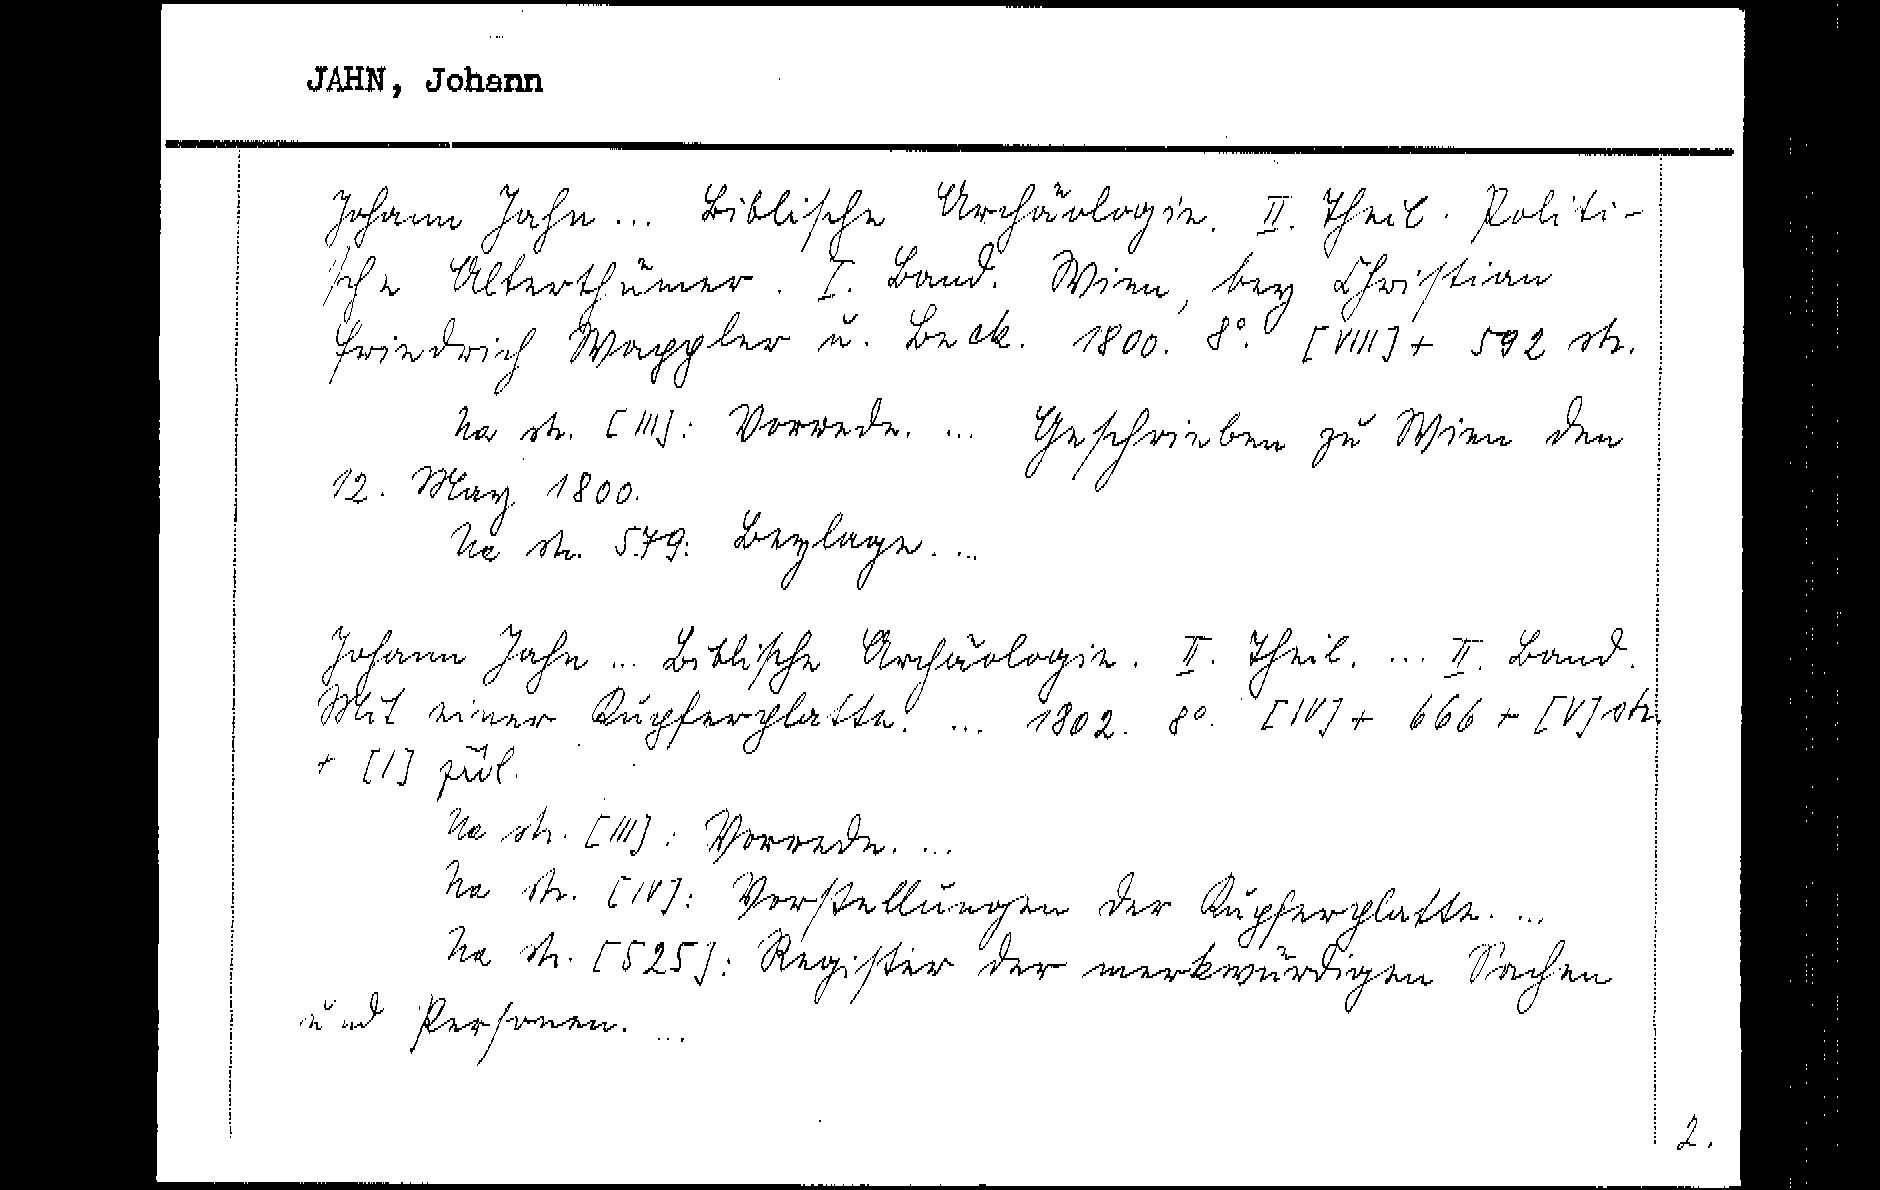 JAHN, Johann
Johann Jahn ... Biblische Archäologie. II. Theil. Politi-
sche Alterthümer. I. Band. Wien, bey Christian
Friedrich Wappler u. Beck. 1800. 8°. [VIII] + 592 str.
Na str. [III]: Vorrede. ... Geschrieben zu Wien den
12. May 1800.
Na str. 579: Beylage. ...
Johann Jahn ... Biblische Archäologie. II. Theil. ... II. Band.
Mit einer Kupferplatte. ... 1802. 8°. [IV] + 666 + [V] str.
+ [I] příl.
Na str. [III]: Vorrede. ...
Na str. [IV]: Vorstellungen der Kupferplatte. ...
Na str. [525]: Register der merkwürdigen Sachen
und Personen. ...
2.